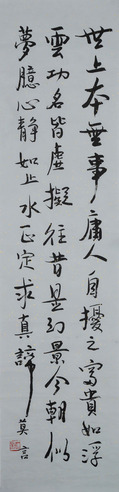 世上本無事庸人自擾之富貴如浮
雲功名皆虛擬往昔是幻景今朝似
夢臆心靜如止水正定求真諦
莫言